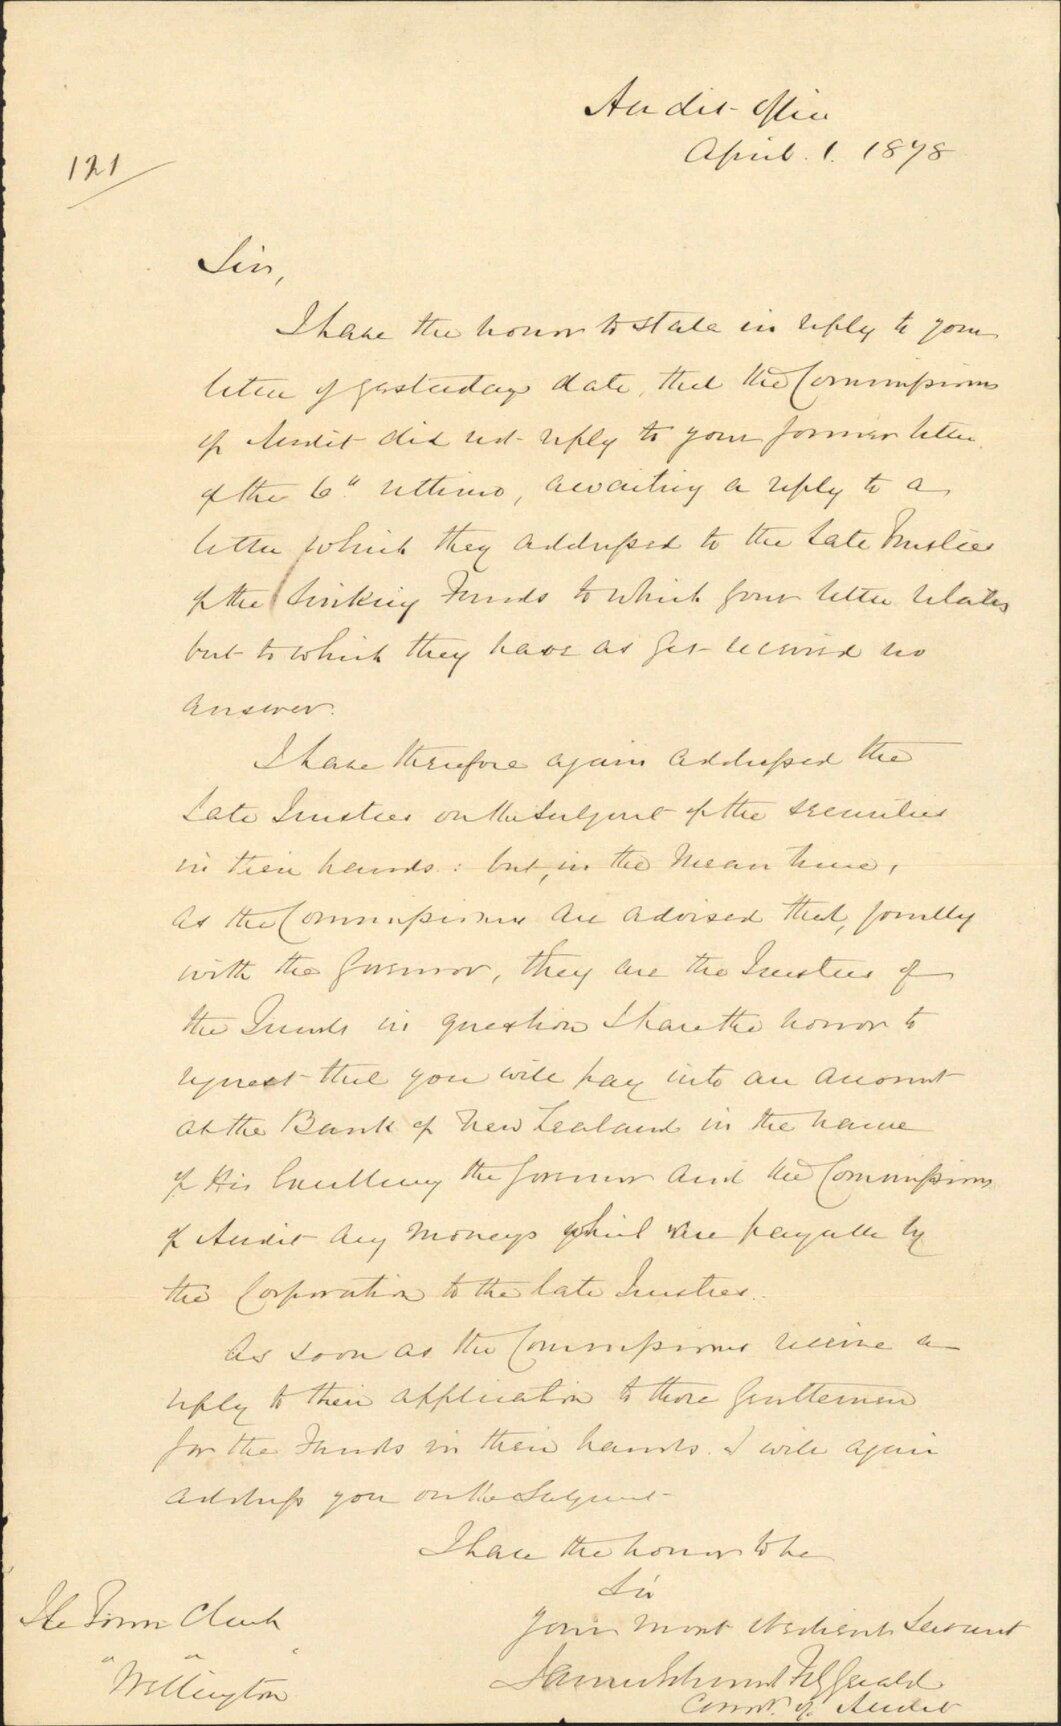 Audit Office
April. 1. 1878
121
Sir,
I have the honor to state in reply to your
letter of yesterdays date, that the Commissioners
of Audit did not reply to your former letter
of the 6" ultimo, awaiting a reply to a
letter which they addressed to the late Trustees
of the Sinking Funds to which your letter relates
but to which they have as yet received no
answer.
I have therefore again addressed the
late Trustees on the subject of the securities
in their hands: but, in the mean time,
as the Commissioners are advised that, jointly
with the Governor, they are the Trustees of
the Funds in question I have the honor to
request that you will pay into an account
at the Bank of New Zealand in the name
of His Excellency the Governor and the Commissioners
of Audit any moneys which are payable by
the Corporation to the late Trustees.
As soon as the Commissioners receive a
reply to their application to those Gentlemen
for the Funds in their hands. I will again
address you on the subject
I have the honor to be
Sir
Your most obedient Servant
James Edward FitzGerald
Commr. of Audit
The Town Clerk
" " "
Wellington